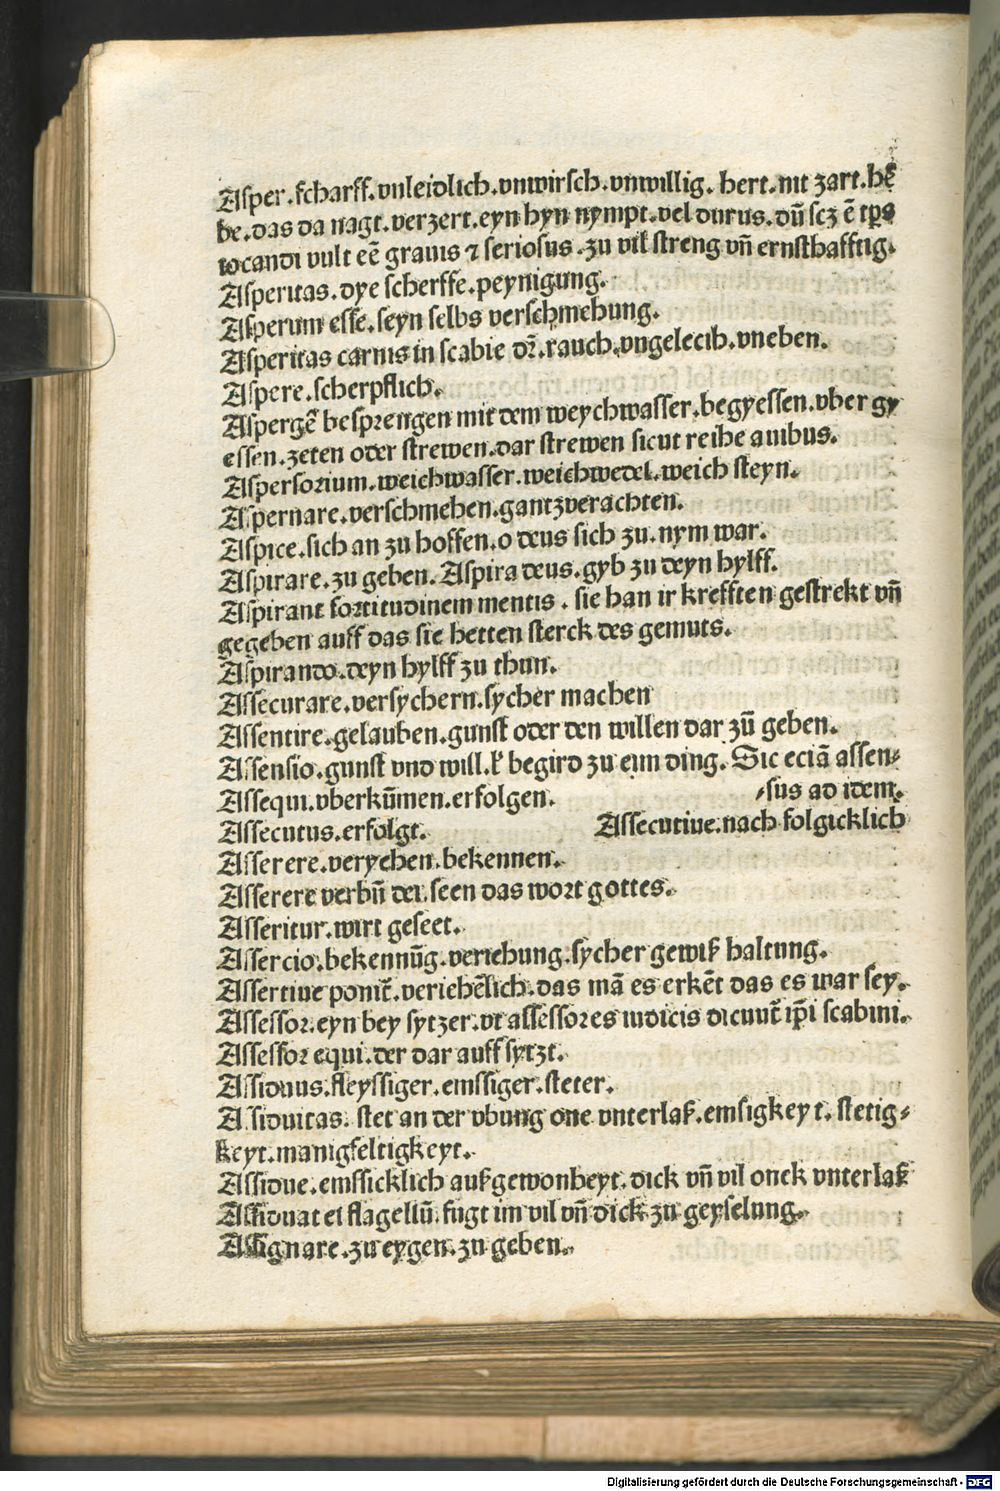 Asper.scharff.vnleidlich.vnwirsch.vnwillig.hert.nit zart.hē
be.das da nagt.verzert.eyn hyn nympt.vel durus.dū scz ē tp̄s
vocandi vult eē grauis ⁊ seriosus.zu vil streng vñ ernsthafftig.
Asperitas.dye scherffe.peynigung.
Asperum esse.seyn selbs verschmehung.
Asperitas carnis in scabie dr̄.rauch.vngelecih.vneben.
Aspere.scherpflich.
Aspergē besprengen mit dem weychwasser.begyessen.vber gy
essen.zeten oder strewen.dar strewen sicut reihe auibus.
Aspersorium.weichwasser.weichwedel.weich steyn.
Aspernare.verschmehen.gantzverachten.
Aspice.sich an zu hoffen.o deus sich zu.nym war.
Aspirare.zu geben.Aspira deus.gyb zu deyn hylff.
Aspirant fortitudinem mentis.sie han ir krefften gestrekt vñ
gegeben auff das sie hetten sterck des gemuts.
Aspirando.deyn hylff zu thun.
Assecurare.versychern.sycher machen
Assentire.gelauben.gunst oder den willen dar zū geben.
Assensio.gunst vnd will.ł begird zu eim ding.Sic eciā assen⸗
Assequi.vberkūmen.erfolgen. ⸗sus ad idem.
Assecutus.erfolgt. Assecutiue.nach folgicklich
Asserere.veryehen.bekennen.
Asserere verbū dei.seen das wort gottes.
Asseritur.wirt geseet.
Assercio.bekennūg.veriehung.sycher gewiß haltung.
Assertiue ponit̄.veriehēlich.das mā es erkēt das es war sey.
Assessor.eyn bey sytzer.vt assessores iudicis dicunt̄ ip̄i scabini.
Assessor equi.der dar auff sytzt.
Assiduus.fleyssiger.emssiger.steter.
Assiduitas.stet an der vbung one vnterlaß.emsigkeyt.stetig⸗
keyt.manigfeltigkeyt.
Assidue.emssicklich außgewonheyt.dick vñ vil onck vnterlaß
Assiduat ei flagellū.fugt im vil vñ dick zu geyselung.
Assignare.zu eygen.zu geben.
Digitalisierung gefördert durch die Deutsche Forschungsgemeinschaft - DFG